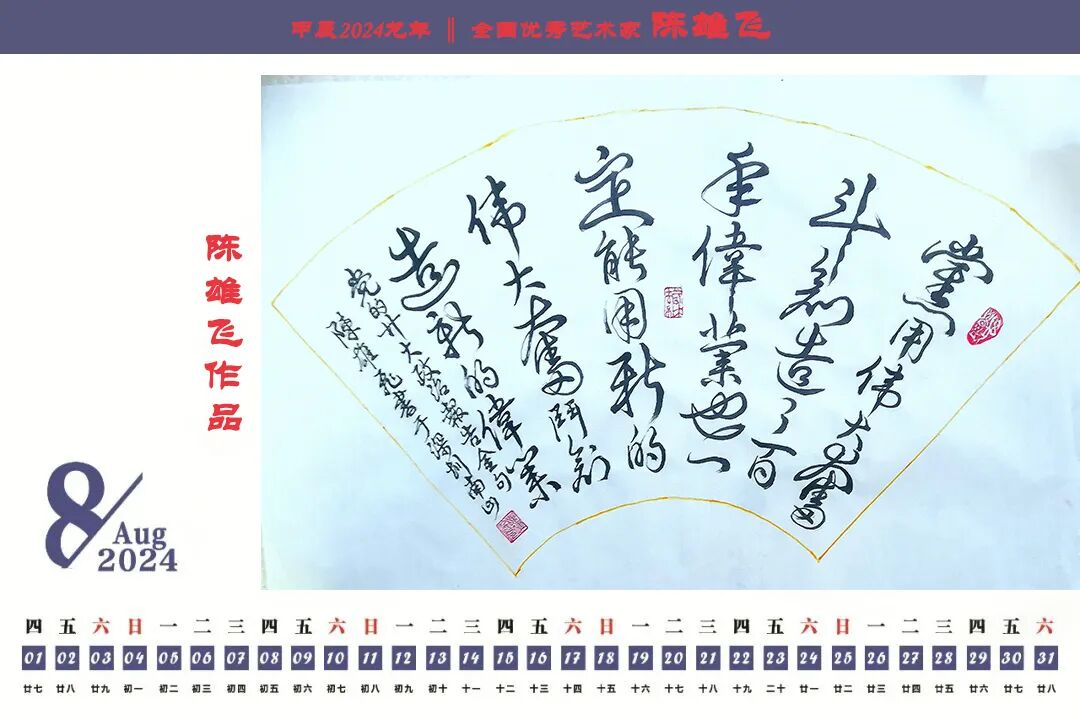 甲辰2024龙年 ‖ 全国优秀艺术家 陈雄飞
陈雄飞作品
黨用伟大奮
斗创造了百
年偉業也一
定能用新的
伟大奮鬥创
造新的偉業
党的廿大政治報告金句
陳雄飛書于深圳南山
8/Aug
2024
四 五 六 日 一 二 三 四 五 六 日 一 二 三 四 五 六 日 一 二 三 四 五 六 日 一 二 三 四 五 六
01 02 03 04 05 06 07 08 09 10 11 12 13 14 15 16 17 18 19 20 21 22 23 24 25 26 27 28 29 30 31
廿七 廿八 廿九 初一 初二 初三 初四 初五 初六 初七 初八 初九 初十 十一 十二 十三 十四 十五 十六 十七 十八 十九 二十 廿一 廿二 廿三 廿四 廿五 廿六 廿七 廿八